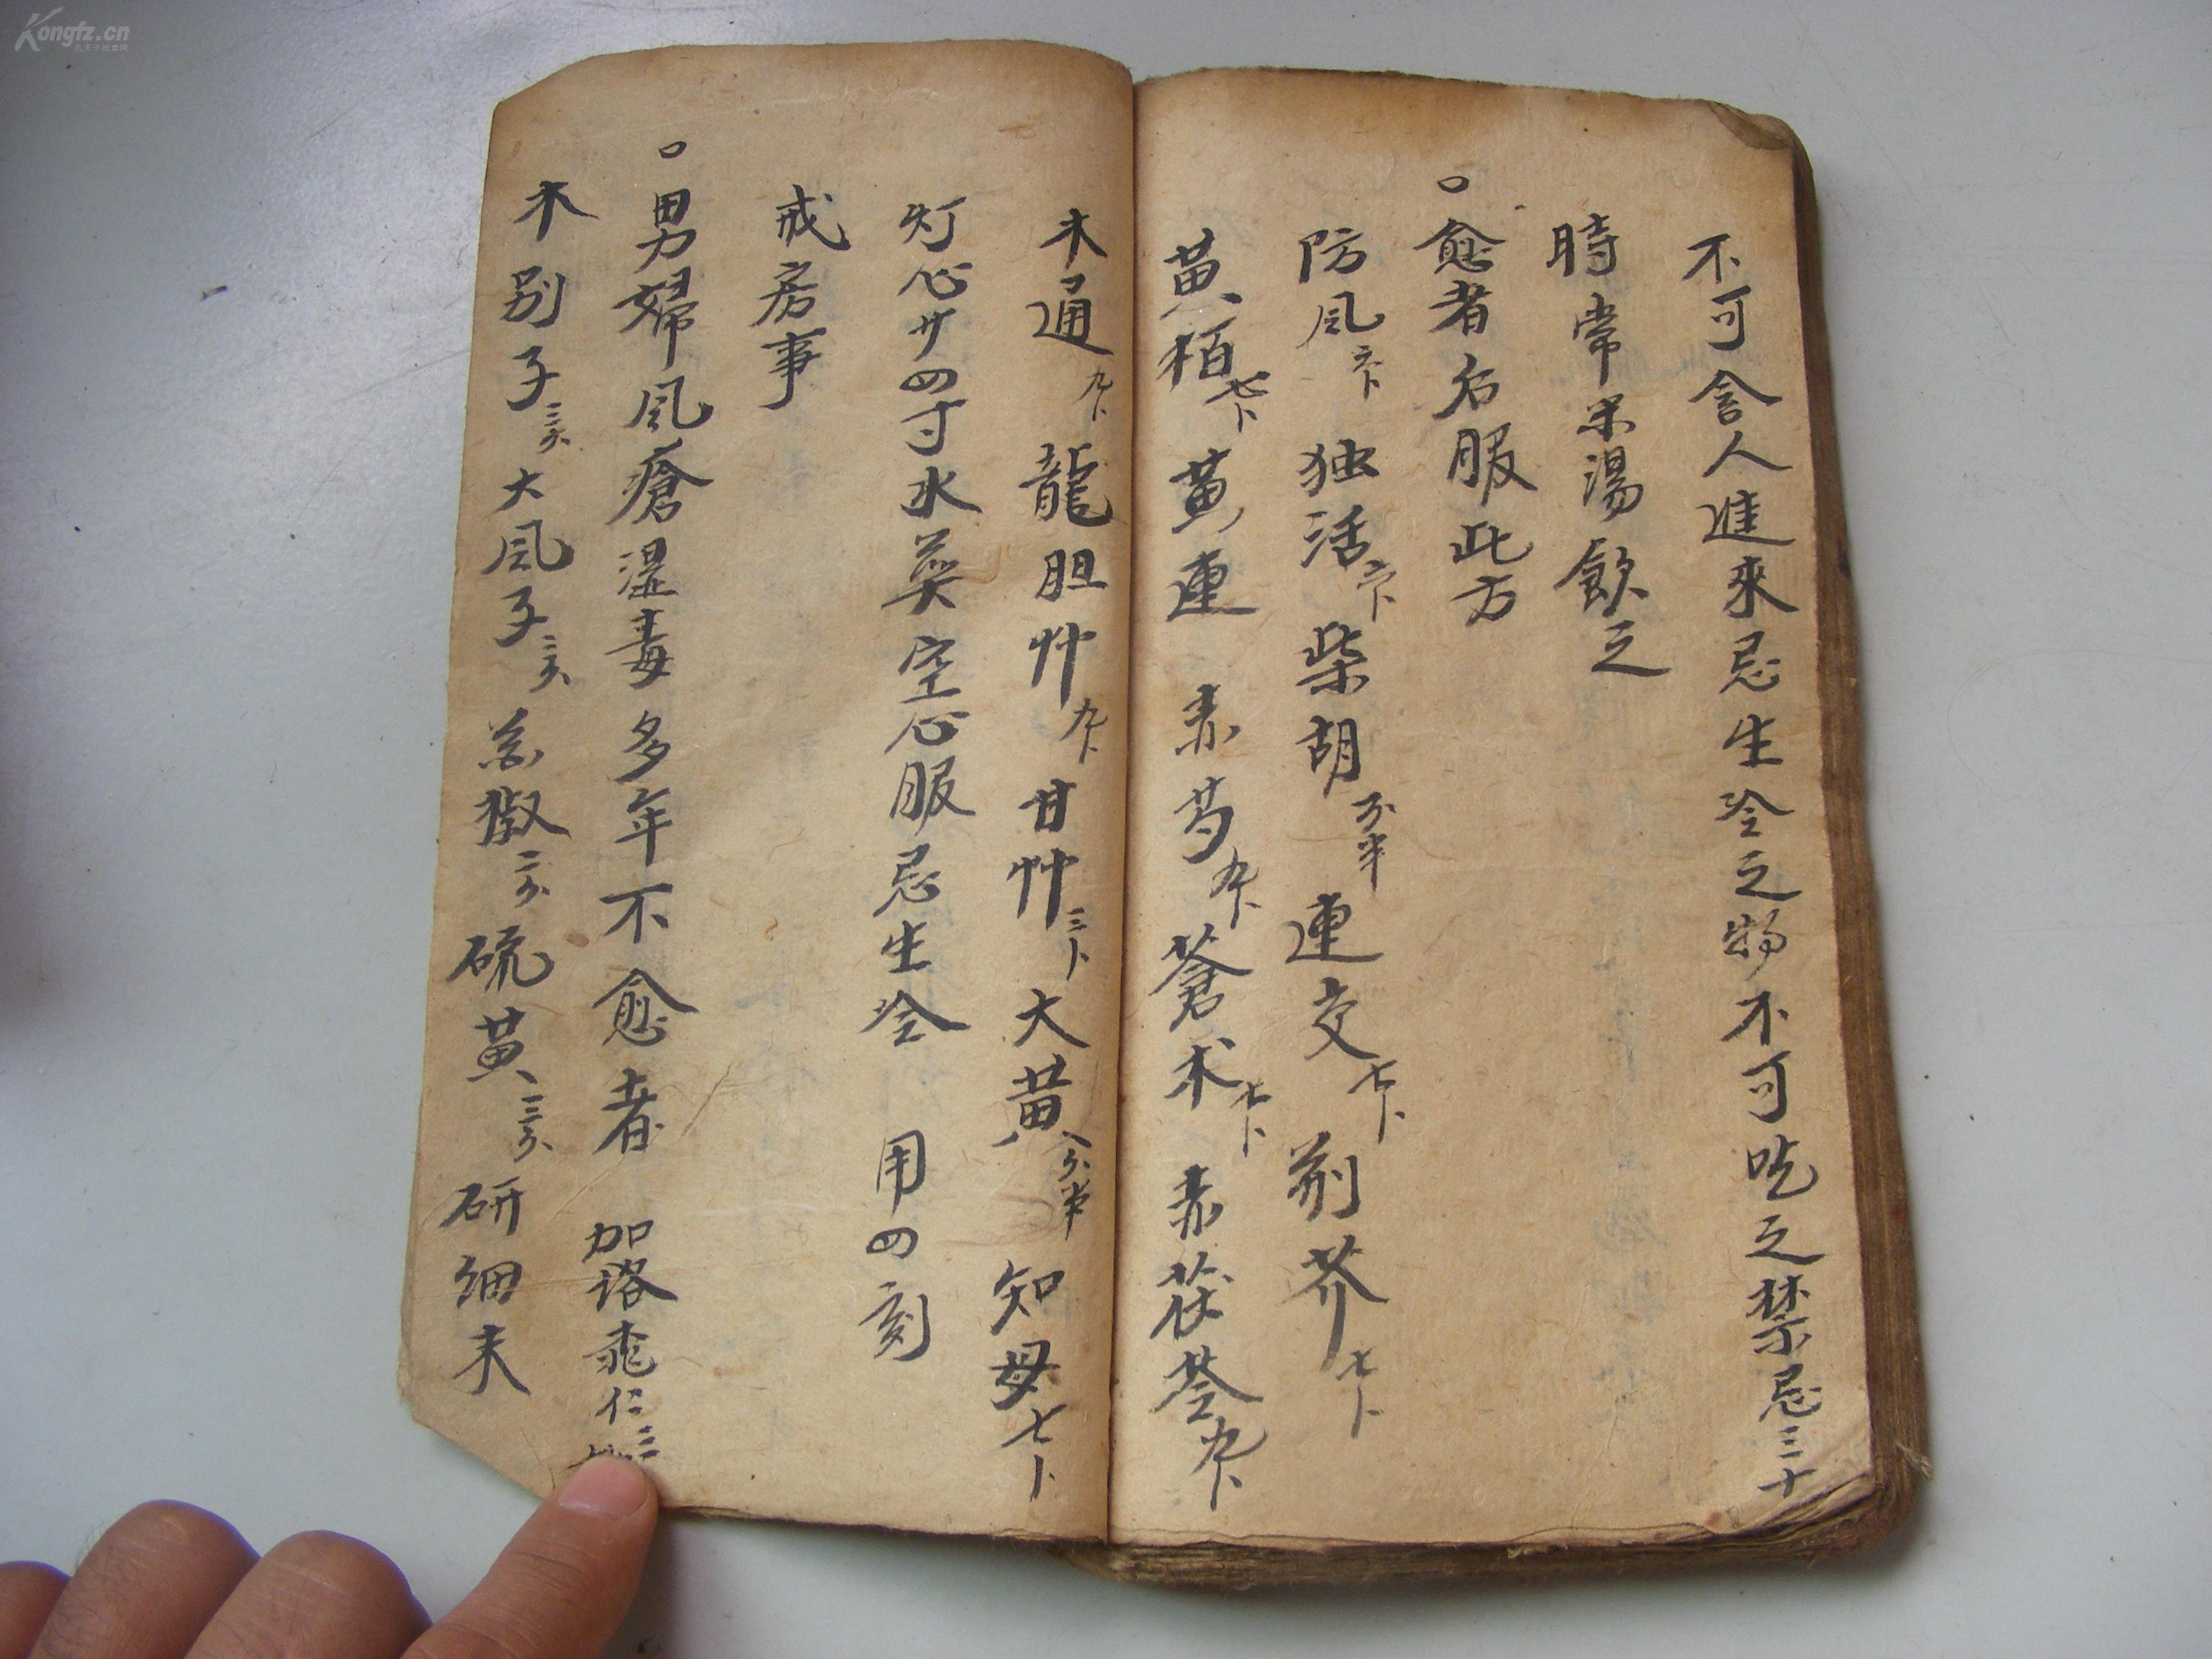 不可舍人進來忌生冷之物不可吃之禁忌三十
時常米湯飲之
愈者后服此方
防風六卜 独活六卜 柴胡不半 連交七卜 荊芥七卜
黃栢七卜 黃連 赤芍九卜 蒼术七卜 赤茯苓九卜
木通九卜 龍胆艸九卜 甘艸三卜 大黃八分半 知母七卜
灯心廿四寸水煎空心服忌生冷 用四刻
戒房事
男婦風瘡濕毒多年不愈者 加 仁三
木別子三分 大風子三分 椒二分 硫黃三分 研細末
Kongfz.cn